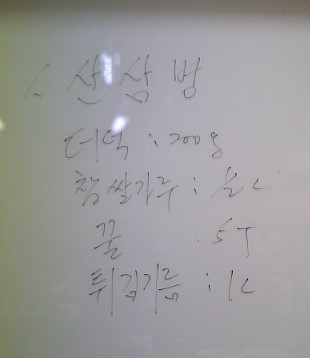 1. 산삼병
더덕 : 200g
찹쌀가루 : ½C
꿀 : 5T
튀김기름 : 1C